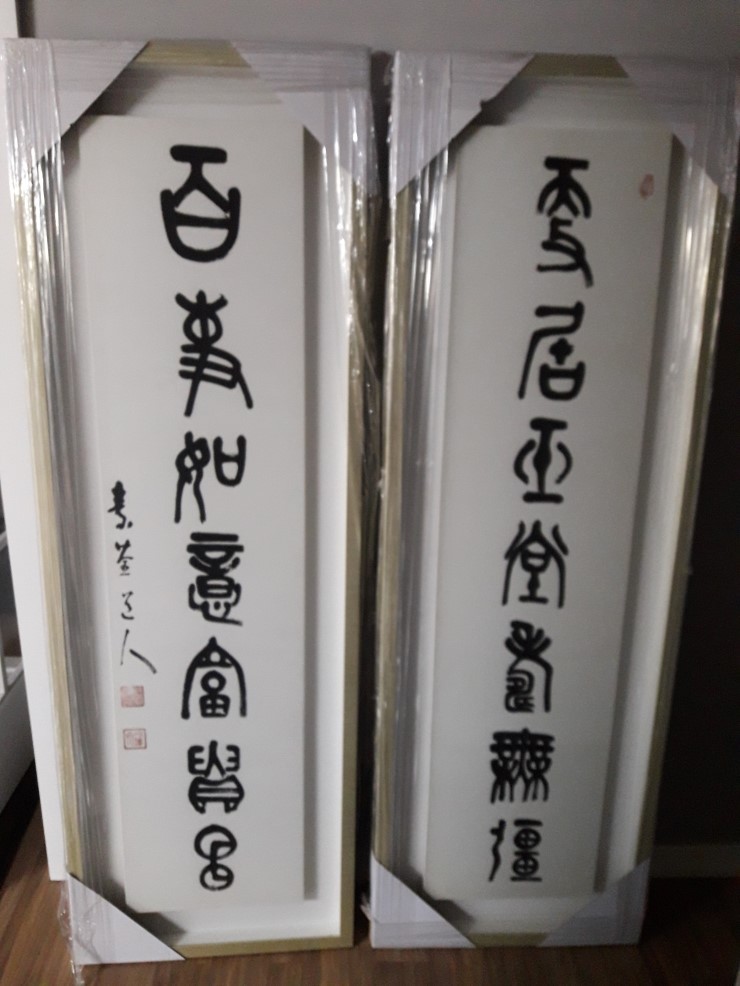 居玉堂壽無疆
百事如意富貴昌
素 道人